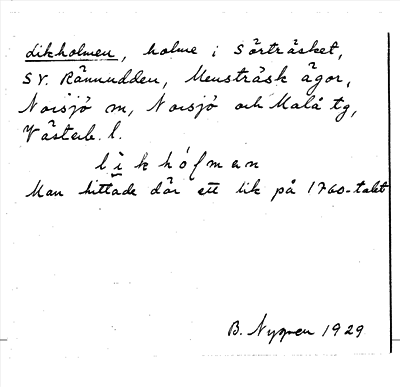 Likholmen, holme i Sörträsket,
SV. Rännudden, Mensträsk ägor,
Norsjö sn, Norsjö och Malå tg,
Västerb. l.
likhólmen
Man hittade där ett lik på 1760-talet
B. Nygren 1929